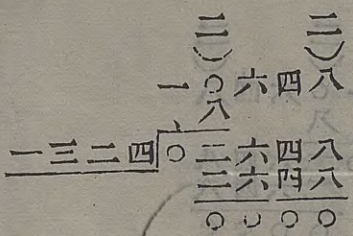 二） 二）
一〇六四八
八
一三二四〇二六四八
二六四八
〇〇〇〇